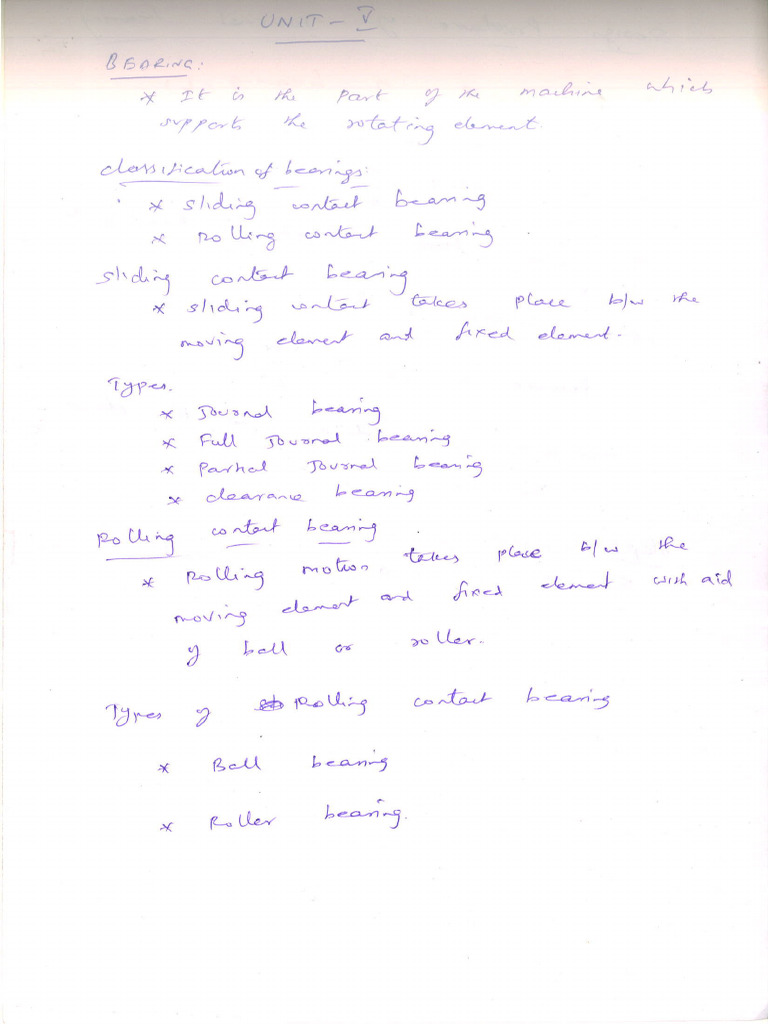 UNIT - V
BEARING:
* It is the part of the machine which
supports the rotating element.
classification of bearings:
* sliding contact bearing
* Rolling contact bearing.
sliding contact bearing
* sliding contact takes place b/w the
moving element and fixed element.
Types.
* Journal bearing
* Full Journal bearing
* Partial Journal bearing
* clearance bearing
Rolling contact bearing.
* Rolling motion takes place b/w the
moving element and fixed element with aid
of ball or roller.
Types of Rolling contact bearing
* Ball bearing
* Roller bearing.